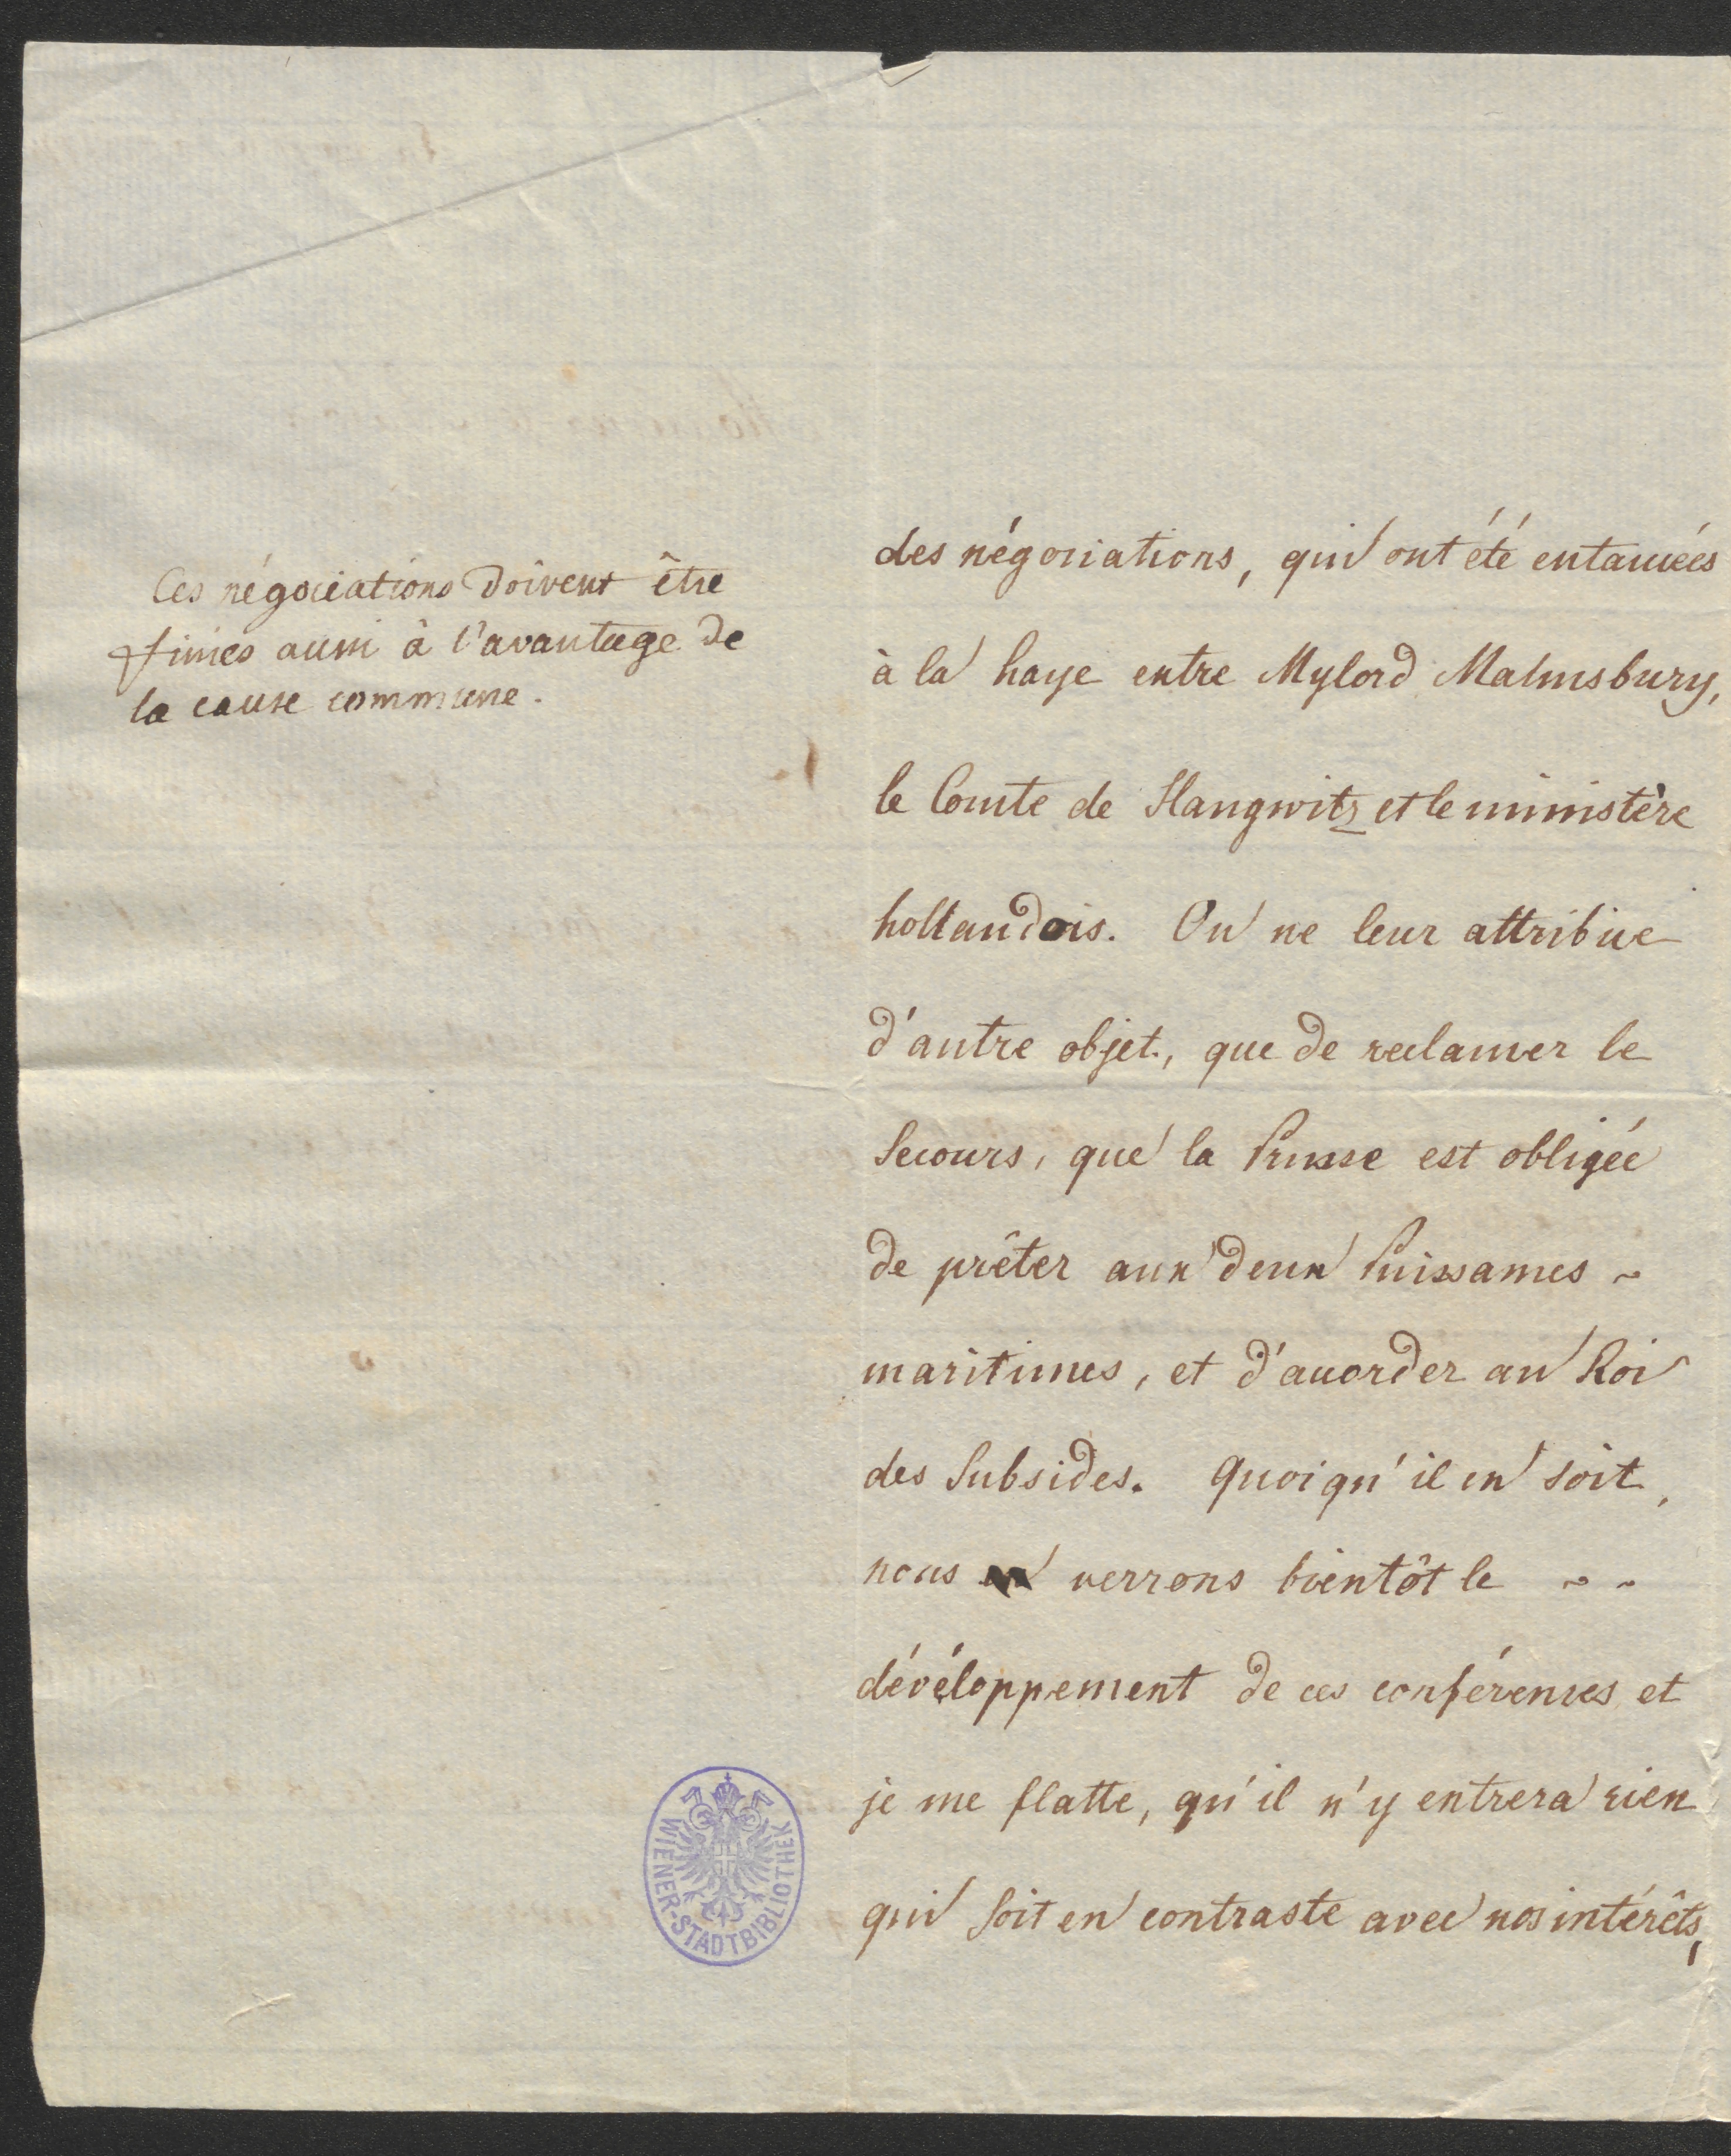 Ces négociations doivent être
finies aussi à l'avantage de
la cause commune.
des négociations, qui ont été entamées
à la haye entre Mylord Malmsbury,
le Comte de Haugwitz et le ministère
hollandois. On ne leur attribue
d'autre objet, que de reclamer le
secours, que la Prusse est obligée
de prêter aux deux Puissances ~
maritimes, et d'accorder au Roi
des Subsides. Quoiqu'il en soit,
nous verrons bientôt le ~ ~
dévéloppement de ces conférences et
je me flatte, qu'il n'y entrera rien
qui soit en contraste avec nos intérêts,
WIENER-STADTBIBLIOTHEK